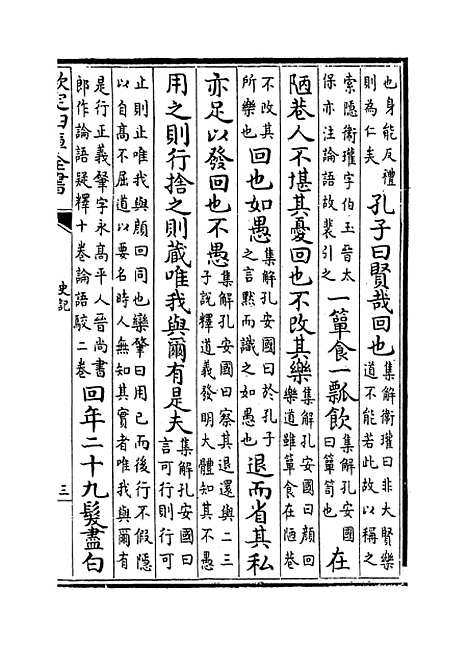 也身能反禮則為仁矣孔子曰賢哉回也集解衛瓘曰非大賢樂道不能若此故以稱之
索隱衛瓘字伯玉晉太保亦注論語故裴引之一簞食一瓢飲集解孔安國曰簞笥也在
陋巷人不堪其憂回也不改其樂集解孔安國曰顔回樂道雖簞食在陋巷
不改其所樂也回也如愚集解孔安國曰於孔子之言默而識之如愚也退而省其私
亦足以發回也不愚集解孔安國曰察其退還與二三子說釋道義發明大體知其不愚
用之則行捨之則藏唯我與爾有是夫集解孔安國曰言可行則行可
止則止唯我與顔回同也欒肇曰用己而後行不假隱以自高不屈道以要名時人無知其實者唯我與爾有
是行正義肇字永高平人晉尚書郎作論語疑釋十卷論語駮二卷回年二十九髮盡白
欽定四庫全書
史記
三